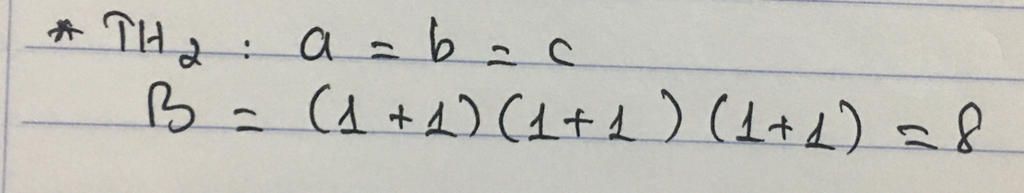 * TH₂ : a = b = c
B = (1+1)(1+1)(1+1) = 8